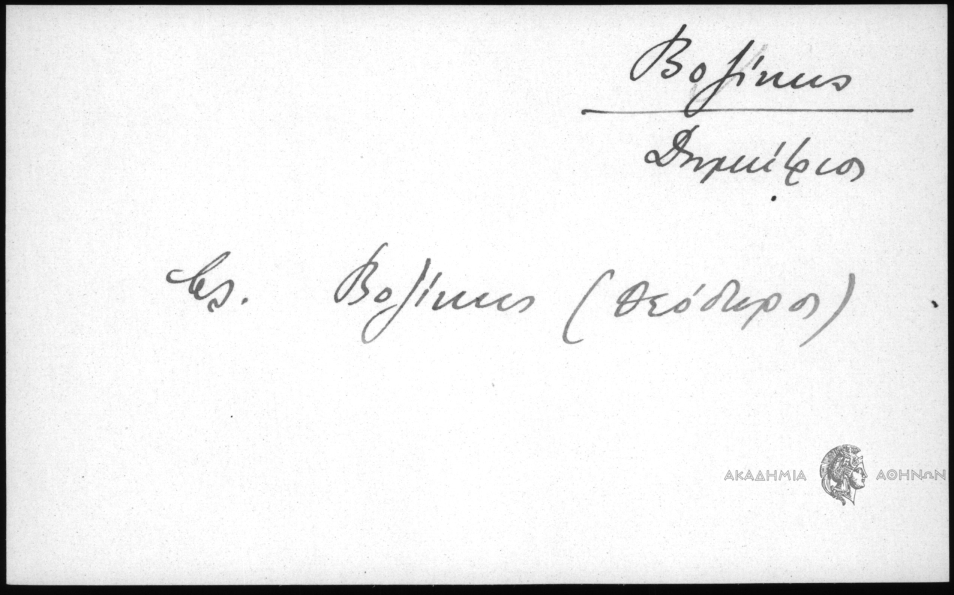 Βοζίκης
Δημήτριος
βλ. Βοζίκης (Θεόδωρος)
ΑΚΑΔΗΜΙΑ ΑΘΗΝΩΝ